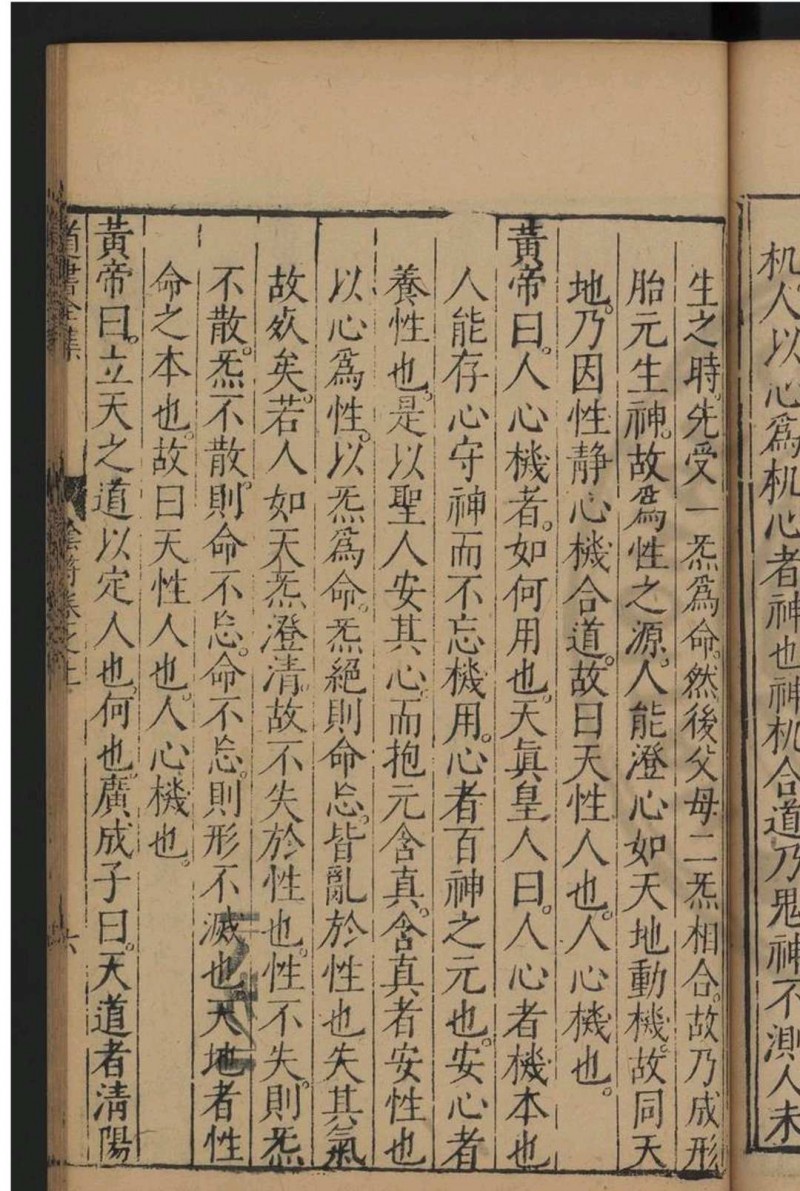 机人以心為机心者神也神机合道乃鬼神不測人未
生之時。先受一炁為命。然後父母二炁相合。故乃成形
胎元生神。故為性之源。人能澄心如天地動機。故同天
地。乃因性静心機合道。故曰天性人也。人心機也。
黃帝曰。人心機者。如何用也。天真皇人曰。人心者機本也
人能存心守神而不忘機用。心者百神之元也。安心者
養性也。是以聖人安其心。而抱元含真。含真者安性也
以心為性。以炁為命。炁絕則命忘。皆亂於性也失其氣
故㱙矣。若人如天炁澄清。故不失於性也。性不失。則炁
不散。炁不散。則命不忘。命不忘。則形不滅也天地者性
命之本也。故曰天性人也。人心機也。
黃帝曰。立天之道以定人也。何也。廣成子曰。天道者清陽
道書全集
陰符集之上
六